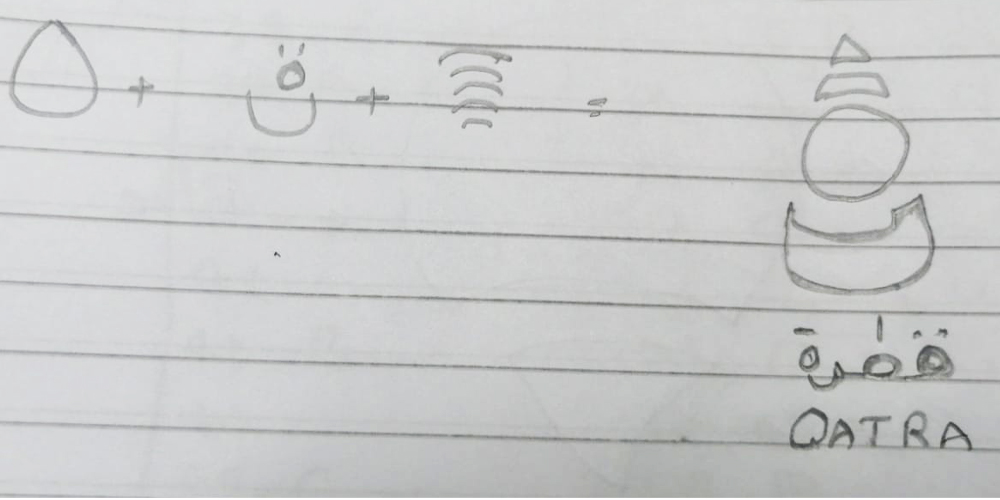 + ق + =
قطرة
QATRA